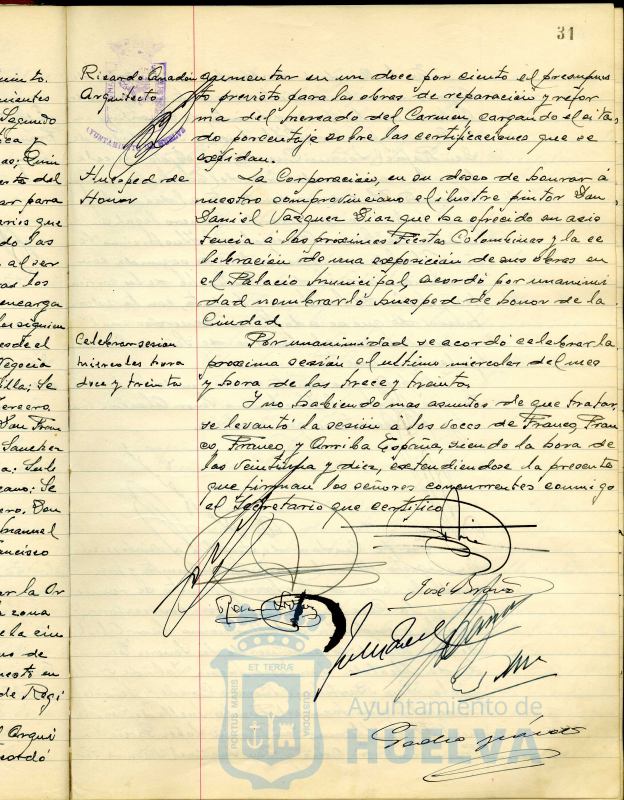 31
Ricardo Anadon
Arquitecto
Huesped de
Honor
Celebrar sesion
miercoles hora
doce y treinta
aumentar en un doce por ciento el presupues
to previsto para las obras de reparación y refor
ma del Mercado del Carmen, cargando el cita
do porcentaje sobre las certificaciones que se
expidan.
La Corporación, en su deseo de honrar á
nuestro comprovinciano el ilustre pintor Don
Daniel Vazquez Diaz que ha ofrecido su asis
tencia á las proximas Fiestas Colombinas y la ce
lebración de una exposición de sus obras en
el Palacio Municipal, acordó por unanimi
dad nombrarló huesped de honor de la
Ciudad.
Por unanimidad se acordó celebrar la
proxima sesión el ultimo miercoles del mes
y hora de las trece y treinta.
Y no habiendo mas asuntos de que tratar,
se levantó la sesión á los voces de Franco, Fran
co, Franco, y Arriba España, siendo la hora de
las veintiuna y diez, extendiendose la presente
que firman los señores concurrentes conmigo
el Secretario que certifico.
José
Pedro
ET TERRÆ
PORTUS MARIS
CUSTODIA
Ayuntamiento de
HUELVA
uientes
Segundo
ica y
del
ar para
que
do las
al ser
los
encarga
el
Se
Tercero
Don Fran
Sanchez
Se
Don
Manuel
ancisco
ar la Or
zona
de
en
de Rogi
Arqui
cordó